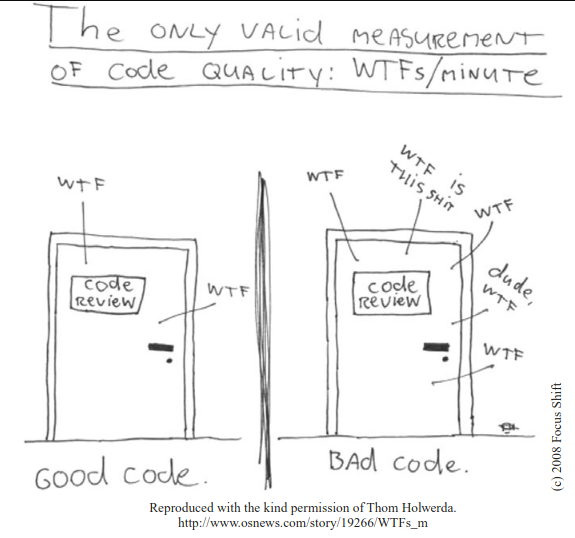 The ONLY VALID MEASUREMENT
OF Code QUALITY: WTFs/MINUTE
WTF
code
REVIEW
WTF
GOOD code.
WTF
WTF is
THIS SHIT
WTF
code
REVIEW
dude,
WTF
WTF
BAd code.
(c) 2008 Focus Shift
Reproduced with the kind permission of Thom Holwerda.
http://www.osnews.com/story/19266/WTFs_m